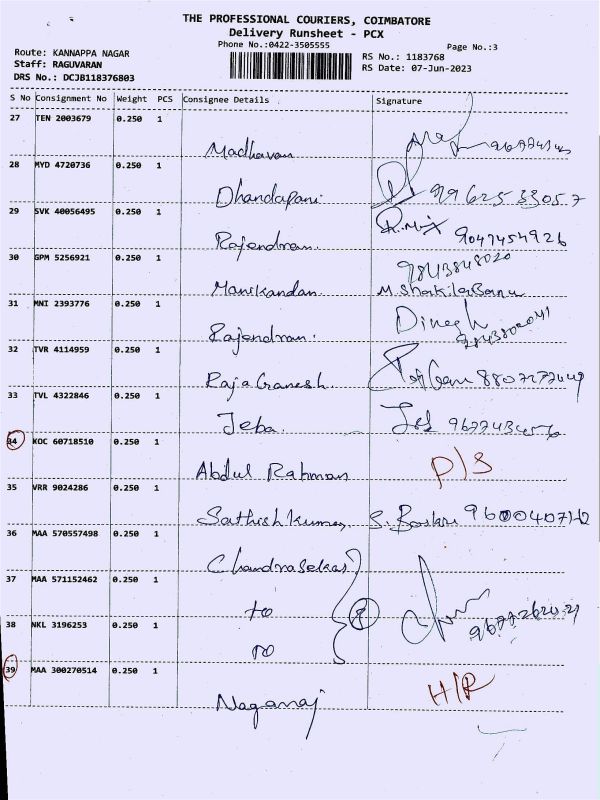 THE PROFESSIONAL COURIERS, COIMBATORE
Delivery Runsheet - PCX
Phone No.:0422-3505555
Page No.:3
Route: KANNAPPA NAGAR
Staff: RAGUVARAN
DRS No.: DCJB118376803
RS No.: 1183768
RS Date: 07-Jun-2023
S No Consignment No Weight PCS Consignee Details Signature
27 TEN 2003679 0.250 1
Madhavan
28 MYD 4720736 0.250 1
Dhandapani 9962533057
29 SVK 40056495 0.250 1
Rajendran 9047454926
30 GPM 5256921 0.250 1
9843848020
Manikandan M. Shakila Banu
31 MNI 2393776 0.250 1
Rajendran. Dinesh
32 TVR 4114959 0.250 1
Raja Ganesh
33 TVL 4322846 0.250 1
Jeba. 9677434576
34 KOC 60718510 0.250 1
Abdul Rahman P/S
35 VRR 9024286 0.250 1
Sathish Kumar S.
36 MAA 570557498 0.250 1
Chandrasekar
37 MAA 571152462 0.250 1
to
38 NKL 3196253 0.250 1
39 MAA 300270514 0.250 1
Nagaraj H/R